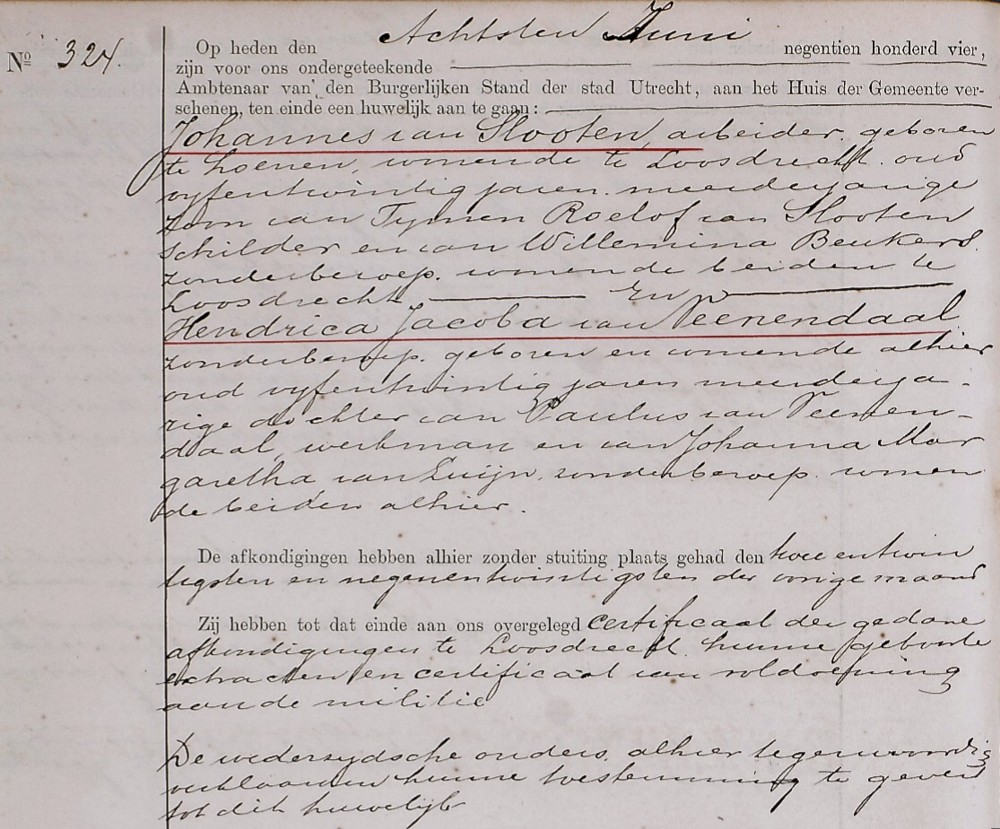 Achtsten Juni
Nº 324.
Op heden den negentien honderd vier,
zijn voor ons ondergeteekende
Ambtenaar van den Burgerlijken Stand der stad Utrecht, aan het Huis der Gemeente ver-
schenen, ten einde een huwelijk aan te gaan:
Johannes van Slooten, arbeider, geboren
te Loenen, wonende te Loosdrecht. oud
vyfentwintig jaren. meerderjarige
zoon van Tymen Roelof van Slooten
schilder en van Willemina Beukers.
zonderberoep. wonende beiden te
Loosdrecht. En
Hendrica Jacoba van Veenendaal
zonderberoep. geboren en wonende alhier
oud vyfentwintig jaren meerderja-
rige dochter van Paulus van Veenen-
daal, werkman en van Johanna Mar
garetha van Luijn, zonderberoep. wonen
de beiden alhier.
De afkondigingen hebben alhier zonder stuiting plaats gehad den twee entwin
tigsten en negenentwintigsten der vorige maand
Zij hebben tot dat einde aan ons overgelegd certificaat der gedane
afkondigingen te Loosdrecht hunne geboorte
extracten en certificaat van voldoening
aan de militie
De wederzydsche ouders, alhier tegenwoordig
verklaarden hunne toestemming te geven
tot dit huwelijk